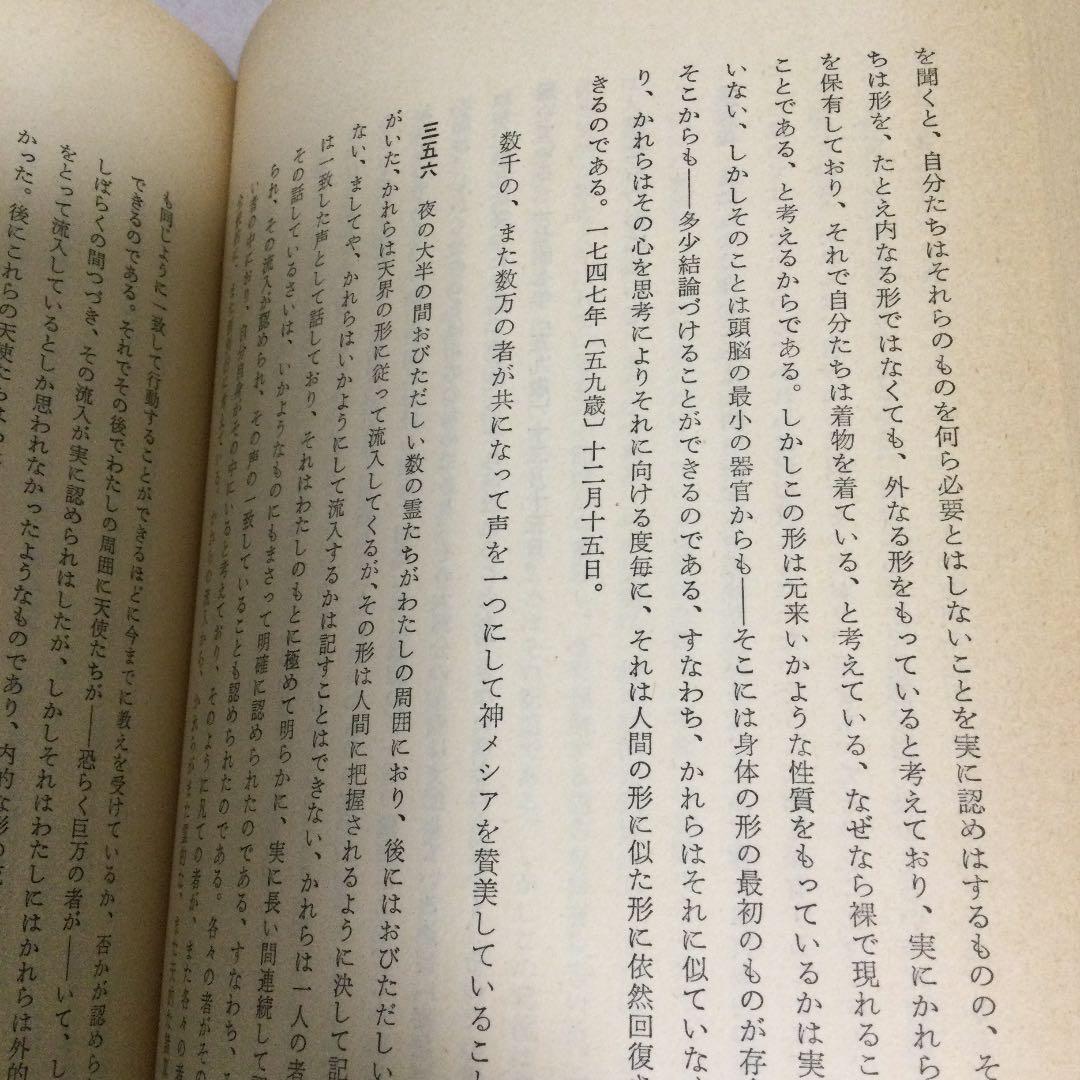 を聞くと、自分たちはそれらのものを何ら必要とはしないことを実に認めはするものの、そ
ちは形を、たとえ内なる形ではなくても、外なる形をもっていると考えており、実にかれら
を保有しており、それで自分たちは着物を着ている、と考えている、なぜなら裸で現れるこ
ことである、と考えるからである。しかしこの形は元来いかような性質をもっているかは実
いない、しかしそのことは頭脳の最小の器官からも——そこには身体の形の最初のものが存
そこからも——多少結論づけることができるのである、すなわち、かれらはそれに似ていな
り、かれらはその心を思考によりそれに向ける度毎に、それは人間の形に似た形に依然回復さ
きるのである。一七四七年〔五九歳〕十二月十五日。
数千の、また数万の者が共になって声を一つにして神メシアを賛美しているこ
三五六　夜の大半の間おびただしい数の霊たちがわたしの周囲におり、後にはおびただしい
がいた、かれらは天界の形に従って流入してくるが、その形は人間に把握されるように決して記
ない、ましてや、かれらはいかようにして流入するかは記すことはできない、かれらは一人の者
は一致した声として話しており、それはわたしのもとに極めて明らかに、実に長い間連続して
その話しているさいは、いかようなものにもまさって明確に認められたのである、すなわち、
られ、その流入が認められ、その声の一致していることも認められたのである。各々の者がそ
い者の中におり、自分自身がその中にいると考えており、そのように凡ての者が、また各々の者
も同じように一致して行動することができるほどに今までに教えを受けているか、否かが認めら
できるのである。それでその後でわたしの周囲に天使たちが——恐らく巨万の者が——いて、し
しばらくの間つづき、その流入が実に認められはしたが、しかしそれはわたしにはかれらは外的
をとって流入しているとしか思われなかったようなものであり、内的な形の
かった。後にこれらの天使たちは